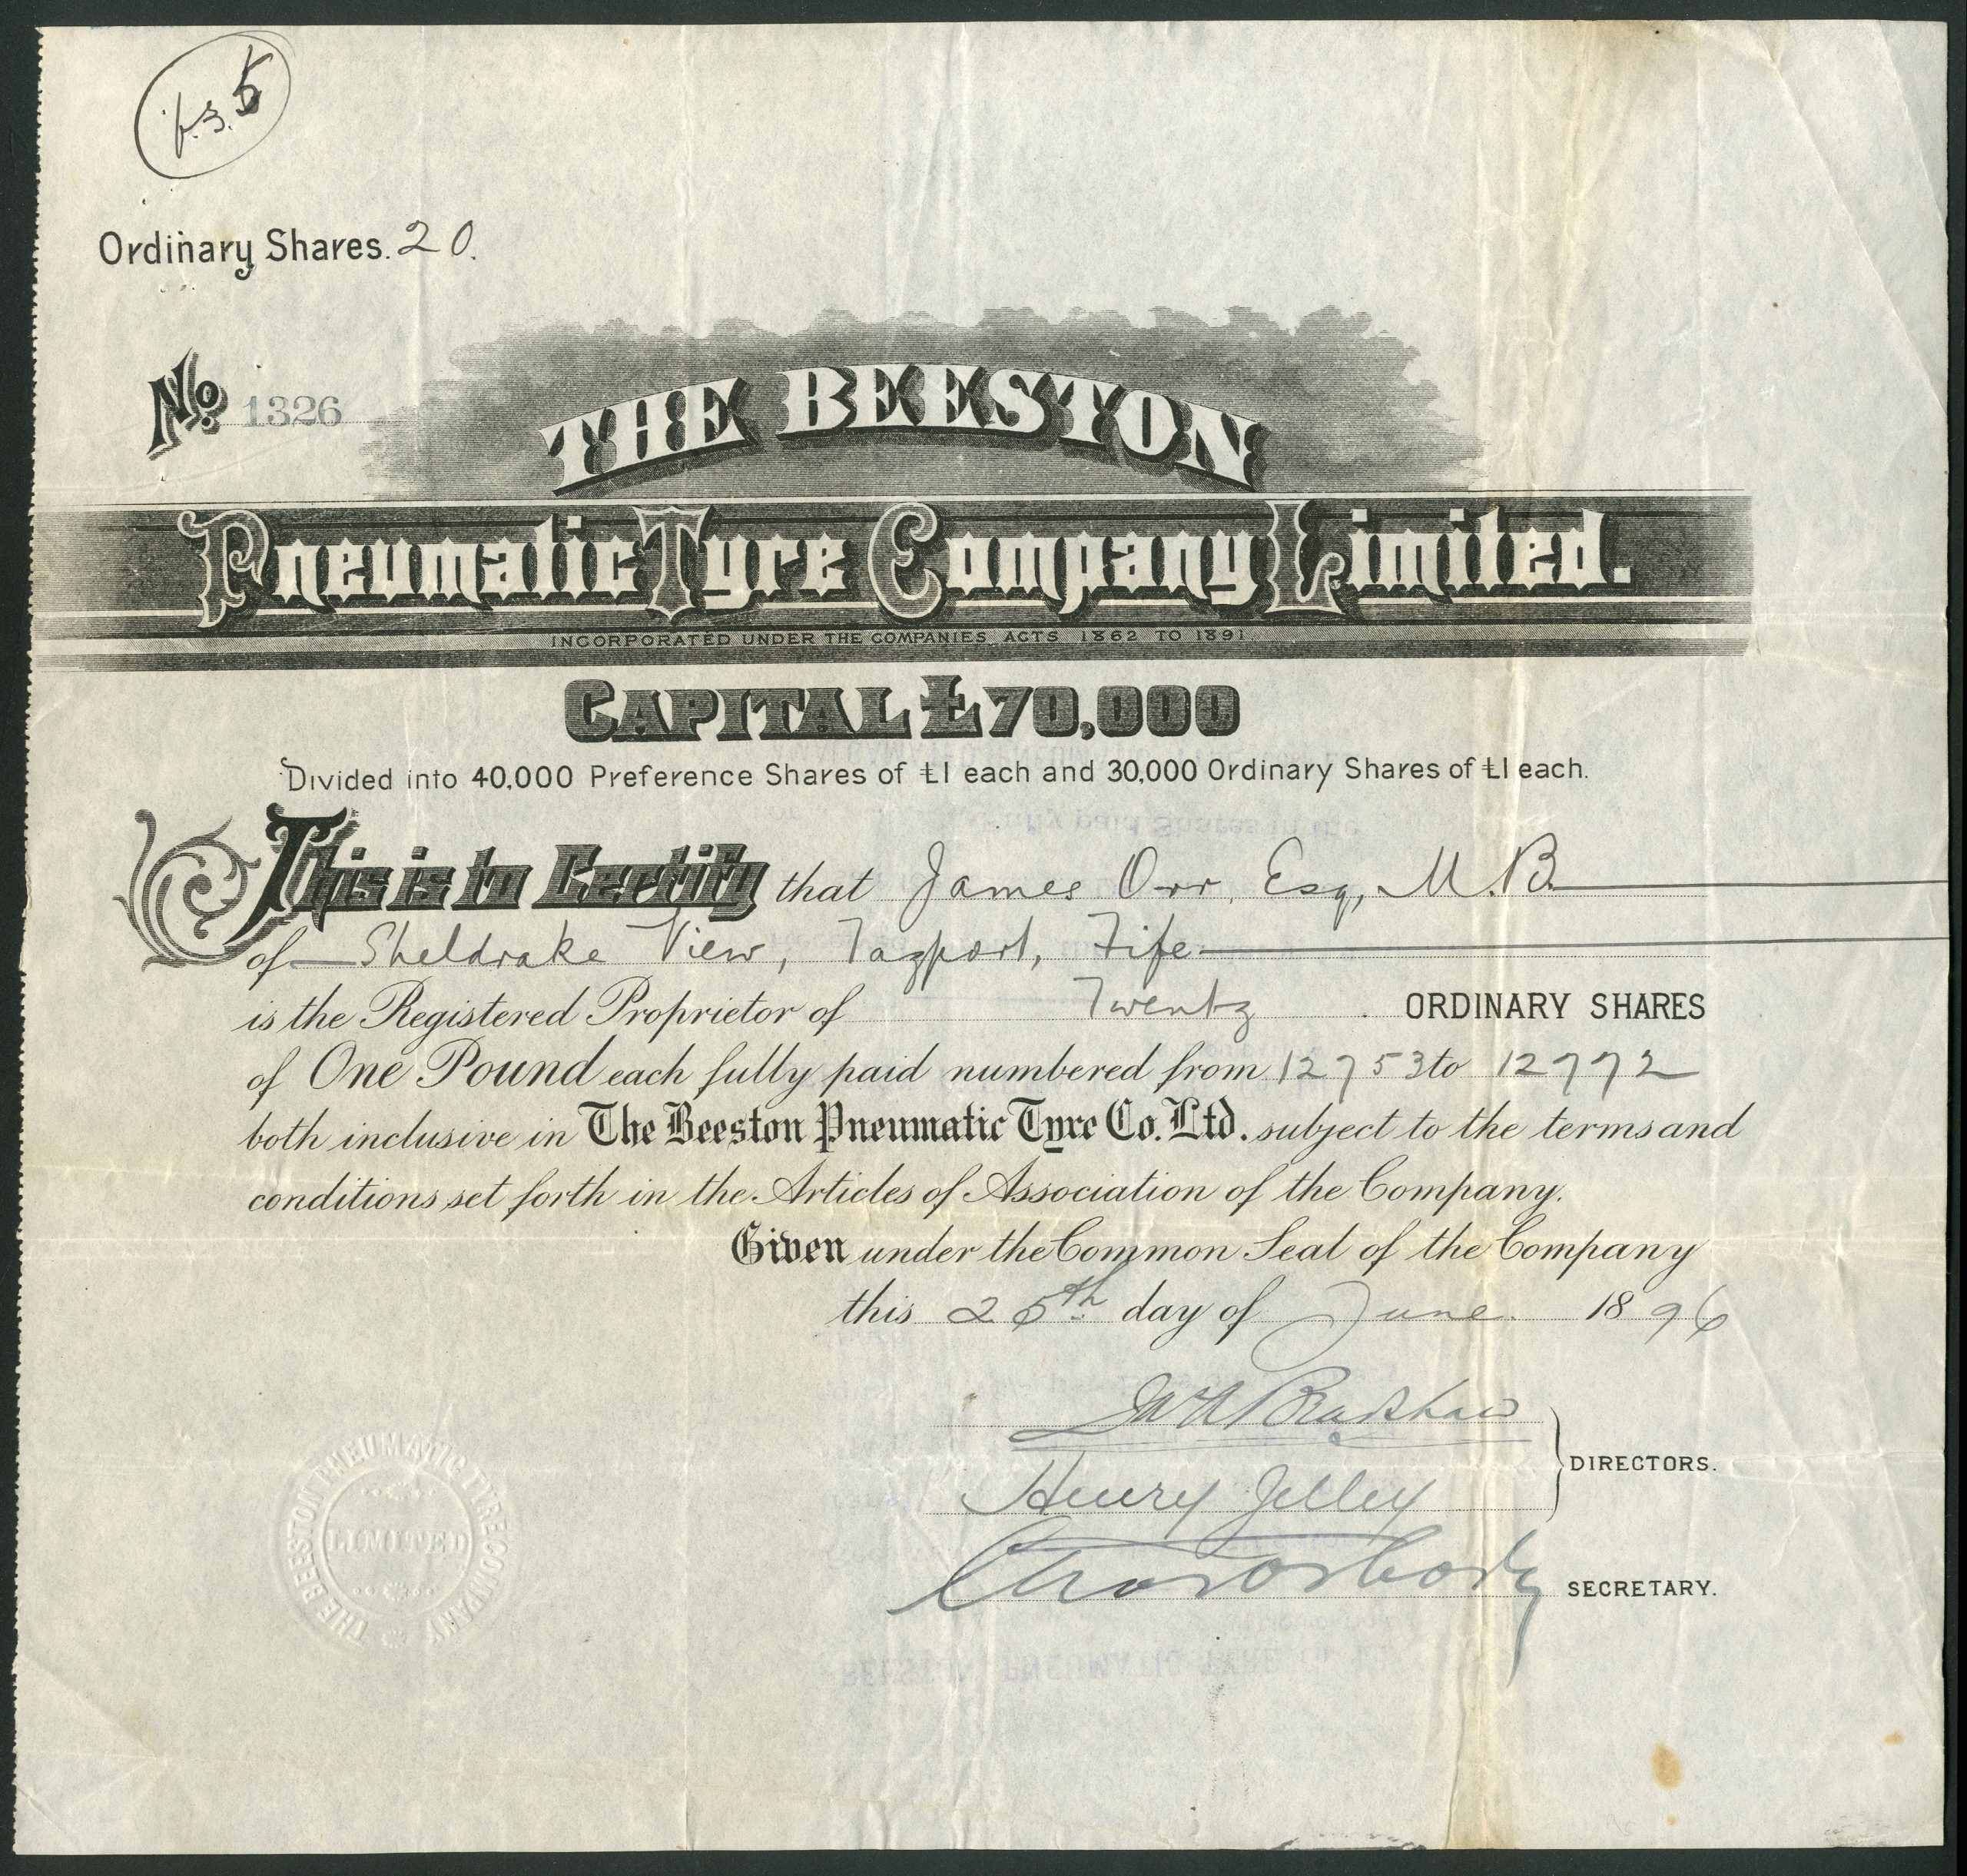 Ordinary Shares. 20.
No. 1326
THE BEESTON
Pneumatic Tyre Company Limited.
INCORPORATED UNDER THE COMPANIES ACTS 1862 TO 1891
CAPITAL £70,000
Divided into 40,000 Preference Shares of £1 each and 30,000 Ordinary Shares of £1 each.
This is to Certify that James Orr, Esq, M.B.
of Sheldrake View, Tayport, Fife
is the Registered Proprietor of Twenty ORDINARY SHARES
of One Pound each fully paid numbered from 12753 to 12772
both inclusive in The Beeston Pneumatic Tyre Co. Ltd. subject to the terms and
conditions set forth in the Articles of Association of the Company.
Given under the Common Seal of the Company
this 25th day of June. 1896
Bradshaw
Henry Jelley
DIRECTORS.
SECRETARY.
THE BEESTON PNEUMATIC TYRE COMPANY
LIMITED